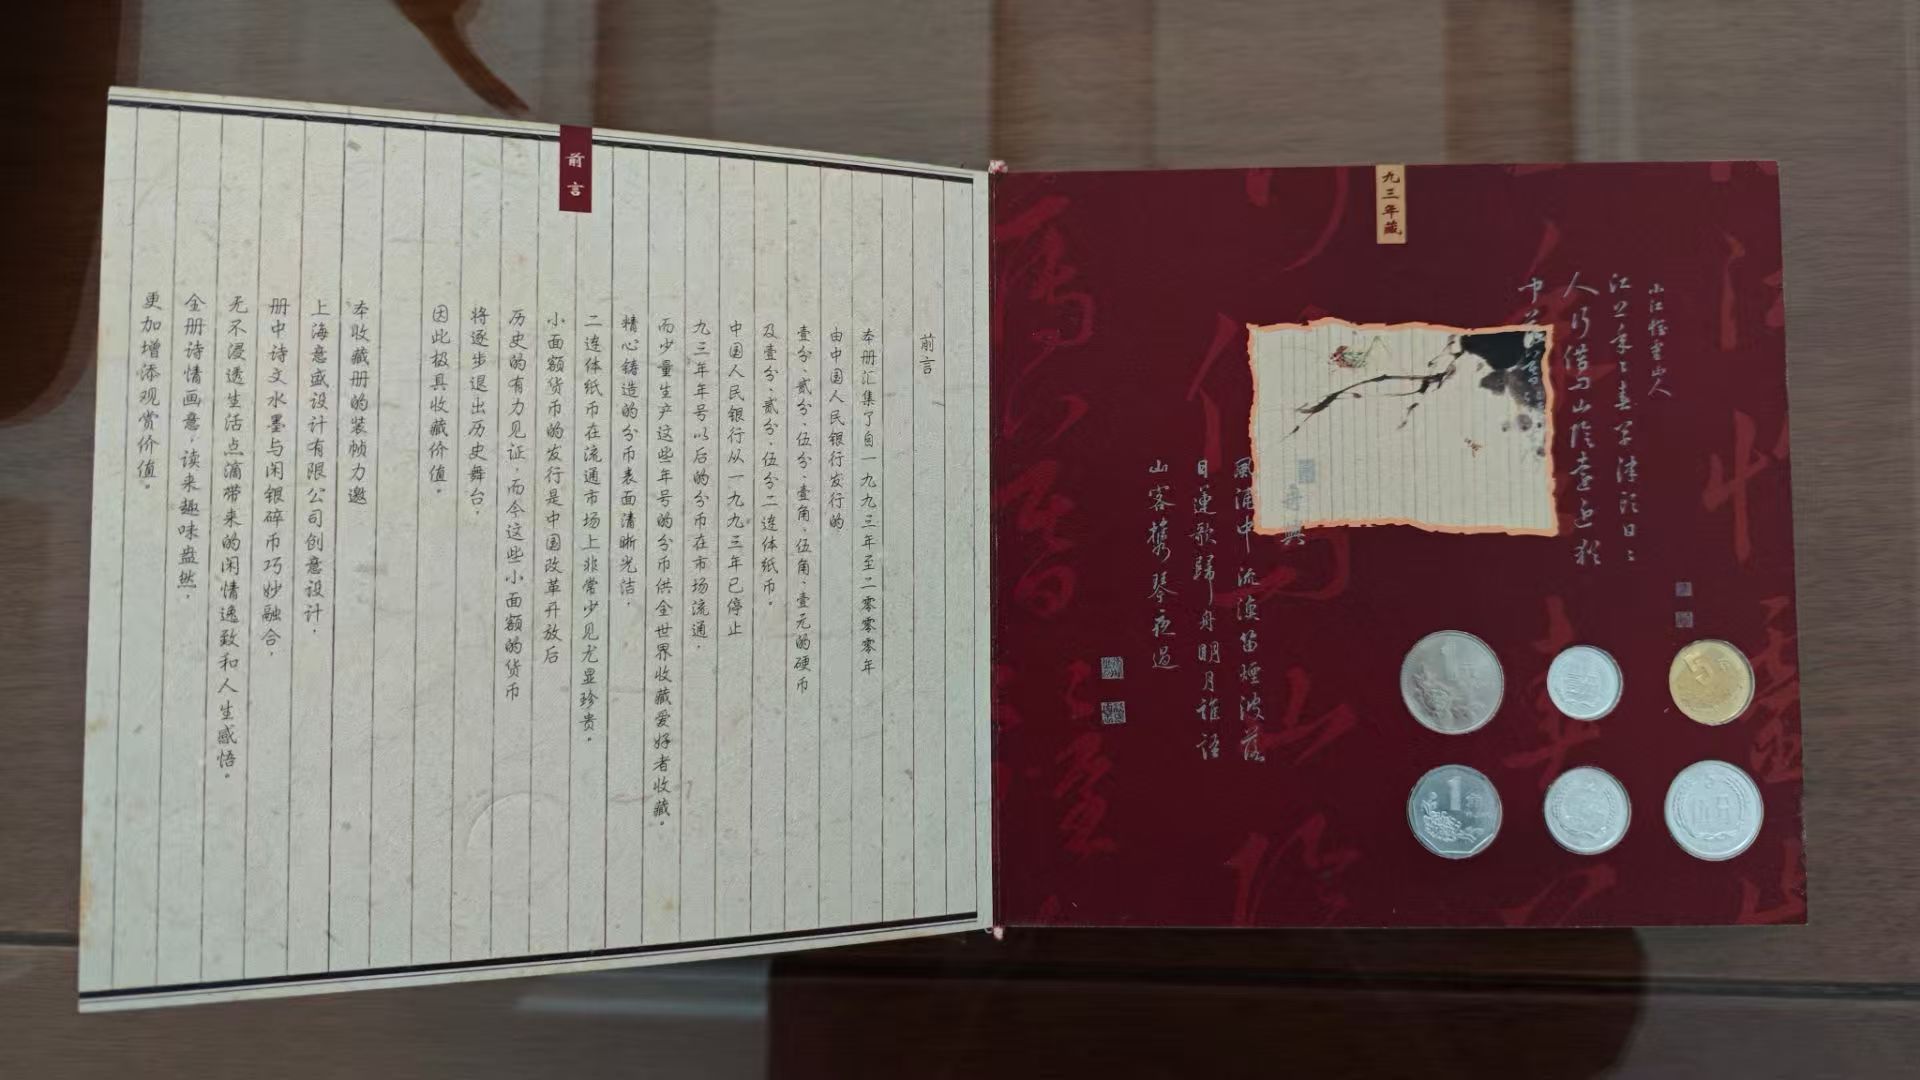 前言
前言
本册汇集了自一九九三年至二零零零年
由中国人民银行发行的
壹分、贰分、伍分、壹角、伍角、壹元的硬币
及壹分、贰分、伍分二连体纸币。
中国人民银行从一九九三年已停止
九三年年号以后的分币在市场流通,
而少量生产这些年号的分币供全世界收藏爱好者收藏。
精心铸造的分币表面清晰光洁,
二连体纸币在流通市场上非常少见尤显珍贵。
小面额货币的发行是中国改革开放后
历史的有力见证,而今这些小面额的货币
将逐步退出历史舞台,
因此极具收藏价值。
本收藏册的装帧力邀
上海意盛设计有限公司创意设计,
册中诗文水墨与闲银碎币巧妙融合,
无不浸透生活点滴带来的闲情逸致和人生感悟。
全册诗情画意,读来趣味盎然,
更加增添观赏价值。
九三年藏
風浦中流漁笛煙波落
日蓮歌歸舟明月誰語
山客攜琴夜過
1
5
1角